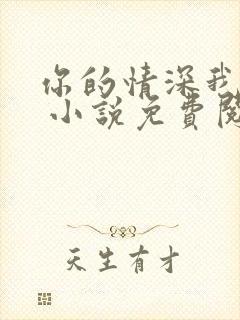 你的情深我
小說免費閱
天生有才